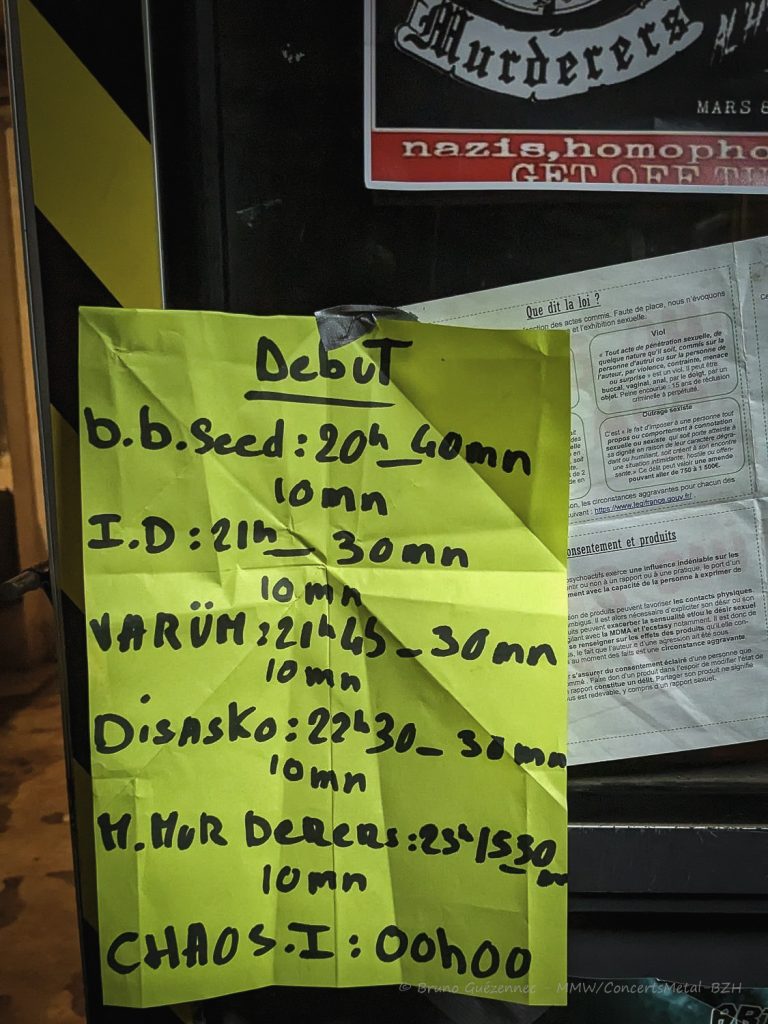 Murderers
MARS 8
nazis,homopho
GET OFF TH
Que dit la loi ?
Faute de place, nous n'évoquons
et l'exhibition sexuelle.
Viol
« Tout acte de pénétration sexuelle, de
quelque nature qu'il soit, commis sur la
personne d'autrui ou sur la personne de
l'auteur, par violence, contrainte, menace
ou surprise » est un viol. Il peut être
buccal, vaginal, anal, par le doigt, par un
objet. Peine encourue : 15 ans de réclusion
criminelle à perpétuité.
Outrage sexiste
C'est « le fait d'imposer à une personne tout
propos ou comportement à connotation
sexuelle ou sexiste, qui soit porte atteinte à
sa dignité en raison de leur caractère dégra-
dant ou humiliant, soit créent à son encontre
une situation intimidante, hostile ou offen-
sante.» Ce délit peut valoir une amende
pouvant aller de 750 à 1 500€.
les circonstances aggravantes pour chacun des
suivant : https://www.legifrance.gouv.fr/
onsentement et produits
psychoactifs exerce une influence indéniable sur les
ou non à un rapport ou à une pratique, le port d'un
ment avec la capacité de la personne à exprimer de
son de produits peuvent favoriser les contacts physiques
ambigus. Il est alors nécessaire d'expliciter son désir ou son
duits peuvent exacerber la sensualité et/ou le désir sexuel
avec la MDMA et l'ecstasy notamment. Il est donc de
se renseigner sur les effets des produits qu'il.elle con-
le fait que l'auteur.e d'une agression ait été sous
au moment des faits est une circonstance aggravante.
s'assurer du consentement éclairé d'une personne que
Faire don d'un produit dans l'espoir de modifier l'état de
rapport constitue un délit. Partager son produit ne signifie
us est redevable, y compris d'un rapport sexuel.
Debut
b.b.Seed : 20h_40mn
10mn
I.D : 21h_ 30mn
10mn
VARÜM : 21h45_30mn
10mn
Disasko : 22h30_30mn
10mn
M.MuRDERERS : 23h15_30mn
10mn
CHAOS.I : 00h00
© Bruno Guézennec - MMW/ConcertsMetal BZH